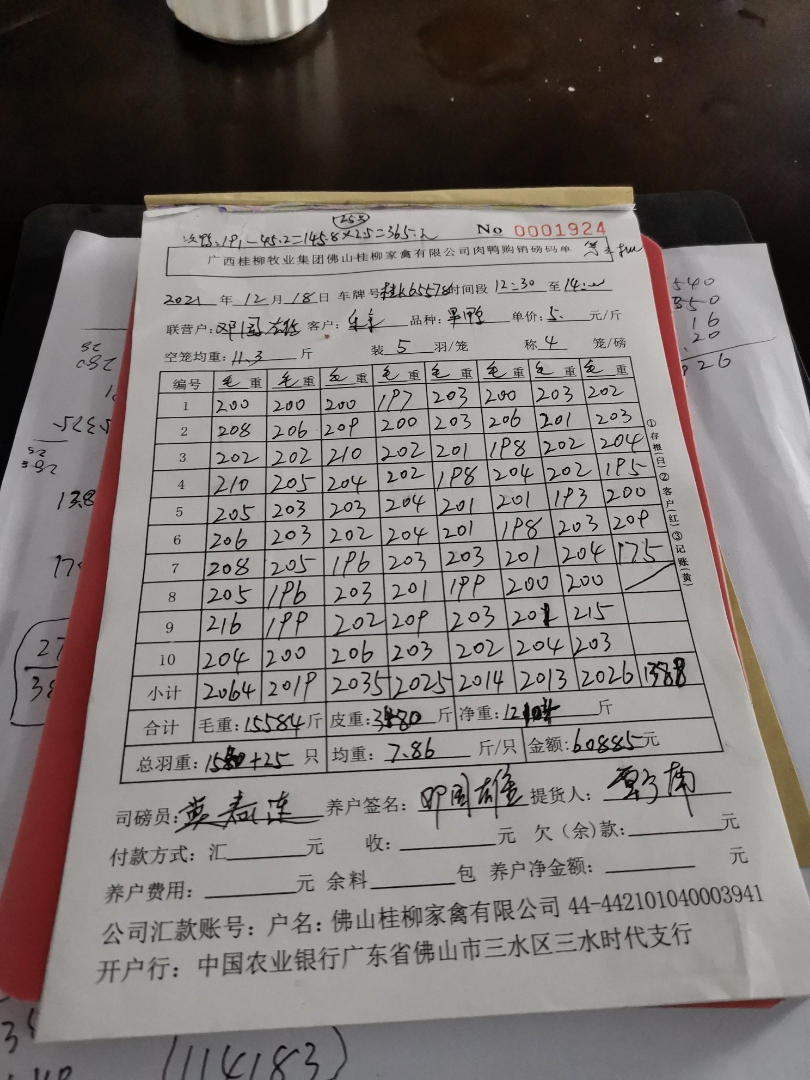 253
191-45.2=145.8×25=365.元
No 0001924
广西桂柳牧业集团佛山桂柳家禽有限公司肉鸭购销磅码单
2021年12月18日 车牌号桂K65578时间段12:30至14:
联营户:邓国雄 客户: 品种: 单价:5.元/斤
空笼均重:11.3斤 装5羽/笼 称4笼/磅
编号 毛重 毛重 毛重 毛重 毛重 毛重 毛重 毛重
1 200 200 200 197 203 200 203 202
2 208 206 209 200 203 206 201 203
3 202 202 210 202 201 198 202 204
4 210 205 204 202 198 204 202 195
5 205 203 203 204 201 201 193 200
6 206 203 202 204 201 198 203 209
7 208 205 196 203 203 201 204 175
8 205 196 203 201 199 200 200
9 216 199 202 209 203 201 215
10 204 200 206 203 202 204 203
小计 2064 2019 2035 2025 2014 2013 2026 1388
合计 毛重:15584斤 皮重:斤 净重:斤
总羽重:+25只 均重:7.86斤/只 金额:60885元
司磅员: 养户签名:邓国雄 提货人:
付款方式:汇 元 收: 元 欠(余)款: 元
养户费用: 元 余料 包 养户净金额: 元
公司汇款账号:户名:佛山桂柳家禽有限公司 44-442101040003941
开户行:中国农业银行广东省佛山市三水区三水时代支行
①存根(白)②客户(红)③记账(黄)
540
350
16
20
926
280
5325
13.8
(114183)